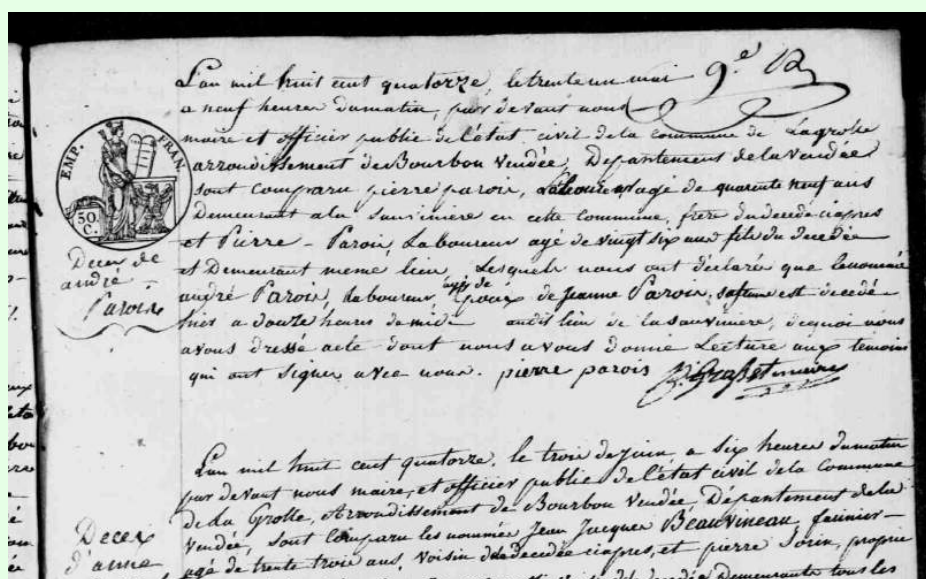 9.e R
L'an mil huit cent quatorze, le trente un mai
a neuf heures du matin, par devant nous
maire et officier public de l'état civil de la commune de Lagrolle
arrondissement de Bourbon Vendée, Departement de la Vendée
sont comparu pierre parois, Laboureur agé de quarente neuf ans
Demeurant a la sauviniere en cette commune, frere du decedé ciapres
et Pierre - Parois, Laboureur agé de vingt six ans fils du decedée
et Demeurant meme lieu, Lesquels nous ont déclarée que le nommé
andré Parois, Laboureur, époux de Jeanne Parois, sa femme est decedé
hier a douze heures de midi audit lieu de la sauviniere, de quoi nous
avons dressé acte dont nous avons Donné Lecture aux temoins
qui ont signer avec nous. pierre parois maire
EMP. FRAN.
50
C.
Deces de
andré
Parois
L'an mil huit cent quatorze. le trois de juin, a six heures du matin
par devant nous maire, et officier public de l'état civil de la Commune
de La Grolle, Arrondissement de Bourbon Vendée, Département de la
Vendée, sont Comparu les nommée Jean Jacques Beauvineau, farinier
agé de trente trois ans, voisin de la decedée ciapres, et pierre Sorin, proprie
decedée Demeurante tous les
Deces
d'anne